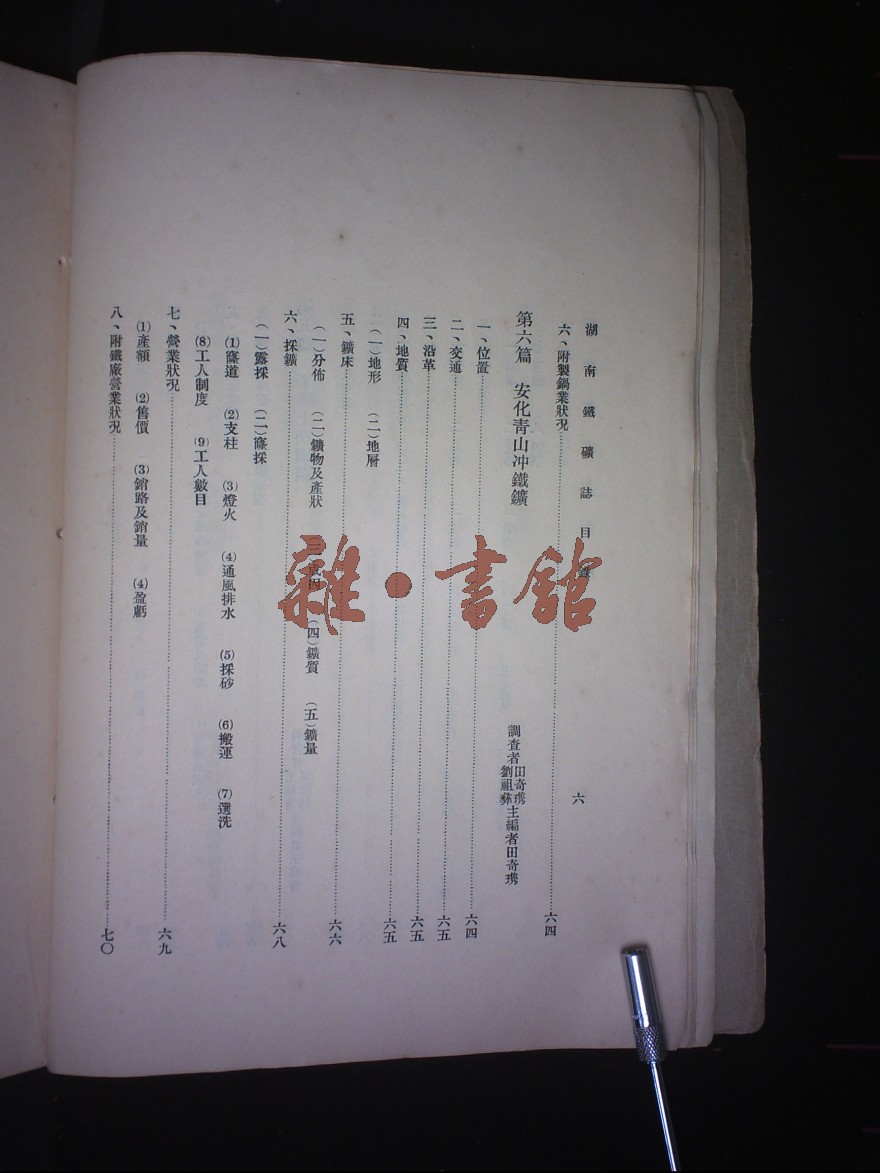 湖南鐵礦誌目錄
六
六、附製鍋業狀况 六四
第六篇 安化靑山冲鐵鑛
調查者田奇㻪劉祖彝主編者田奇㻪
一、位置 六四
二、交通 六五
三、沿革 六五
四、地質 六五
(一)地形 (二)地層
五、鑛床 六六
(一)分佈 (二)鑛物及產狀 (三)成因 (四)鑛質 (五)鑛量
六、採鑛 六八
(一)露採 (二)窿採
(1)窿道 (2)支柱 (3)燈火 (4)通風排水 (5)採砂 (6)搬運 (7)選洗
(8)工人制度 (9)工人數目
七、營業狀况 六九
(1)產額 (2)售價 (3)銷路及銷量 (4)盈虧
八、附鐵廠營業狀况 七〇
雜·書館